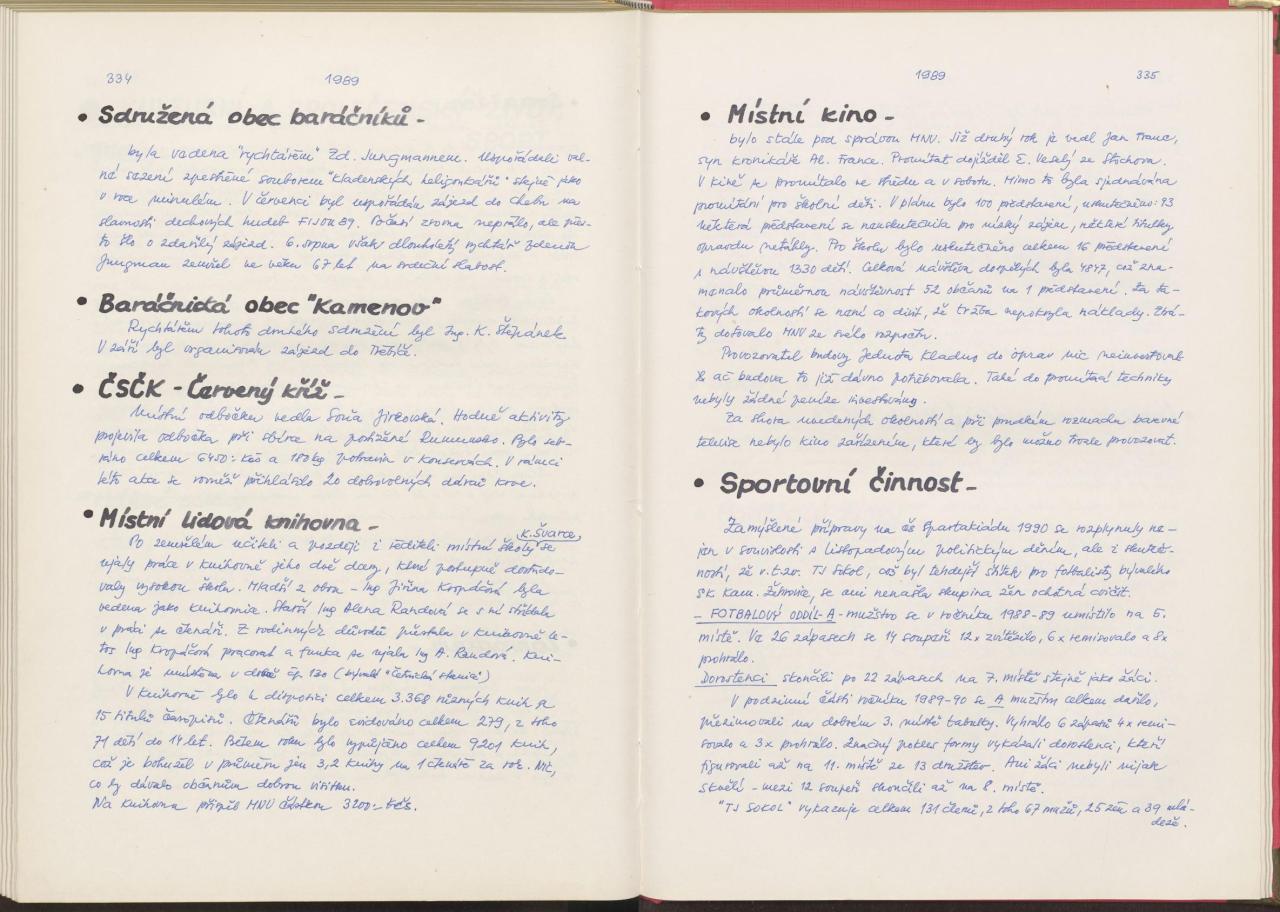 334
1989
• Sdružená obec baráčníků -
byla vedena "rychtářem" Zd. Jungmannem. Uspořádali val-
né sezení zpestřené souborem "Kladenských heligonkářů" stejně jako
v roce minulém. V červenci byl uspořádán zájezd do Chebu na
slavnosti dechových hudeb FIJO 89. Počasí zrovna nepřálo, ale přes-
to šlo o zdařilý zájezd. 6. srpna však dlouholetý rychtář Zdeněk
Jungman zemřel ve věku 67 let na srdeční slabost.
• Baráčnická obec "Kamenov"
Rychtářem tohoto druhého sdružení byl Ing. K. Štěpánek
V září byl organisován zájezd do Třebíče.
• ČSČK - Červený kříž -
Místní odbočku vedla Soňa Jirkovská. Hodně aktivity
projevila odbočka při sbírce na postižené Rumunsko. Bylo seb-
ráno celkem 6450.- Kčs a 180 kg potravin v konservách. V rámci
této akce se rovněž přihlásilo 20 dobrovolných dárců krve.
• Místní lidová knihovna -
K. Švarce,
Po zemřelém učiteli a později i řediteli místní školy se
ujaly práce v knihovně jeho dvě dcery, které postupně dostudo-
valy vysokou školu. Mladší z obou - Ing Jiřina Kropáčová byla
vedena jako knihovnice. Starší Ing Alena Randová se s ní střídala
v práci se čtenáři. Z rodinných důvodů přestala v knihovně le-
tos Ing Kropáčová pracovat a funkce se ujala Ing A. Randová. Kni-
hovna je umístěna v domě čp. 130 (bývalá "četnická stanice")
V knihovně bylo k disposici celkem 3.368 různých knih a
15 titulů časopisů. Čtenářů bylo evidováno celkem 279, z toho
71 dětí do 14 let. Během roku bylo vypůjčeno celkem 9201 knih,
což je bohužel v průměru jen 3,2 knihy na 1 čtenáře za rok. Nic,
co by dávalo občanům dobrou visitku.
Na knihovnu přispěl MNV částkou 3200.- Kčs.
1989
335
• Místní kino -
bylo stále pod správou MNV. Již druhý rok je vedl Jan Franc,
syn kronikáře Al. France. Promítat dojížděl E. Veselý ze Stochova.
V kině se promítalo ve středu a v sobotu. Mimo to byla sjednávána
promítání pro školní děti. V plánu bylo 100 představení, uskutečněno: 93
některá představení se neuskutečnila pro nízký zájem, některé filmy
opravdu netáhly. Pro školu bylo uskutečněno celkem 16 představení
s návštěvou 1330 dětí. Celková návštěva dospělých byla 4847, což zna-
menalo průměrnou návštěvnost 52 občanů na 1 představení. Za ta-
kových okolností se není co divit, že tržba nepokryla náklady. Ztrá-
ty dotovalo MNV ze svého rozpočtu.
Provozovatel budovy Jednota Kladno do oprav nic neinvestoval
ač budova to již dávno potřebovala. Také do promítací techniky
nebyly žádné peníze investovány.
Za shora uvedených okolností a při prudkém rozmachu barevné
televise nebylo kino zařízením, které by bylo možno trvale provozovat.
• Sportovní činnost -
Zamýšlené přípravy na čs Spartakiádu 1990 se rozplynuly ne-
jen v souvislosti s listopadovým politickým děním, ale i skuteč-
ností, že v.t.zv. TJ Sokol, což byl tehdejší štítek pro fotbalisty bývalého
SK Kam. Žehrovice, se ani nenašla skupina žen ochotná cvičit.
- FOTBALOVÝ ODDÍL - A - mužstvo se v ročníku 1988-89 umístilo na 5.
místě. Ve 26 zápasech se 14 soupeři 12x zvítězilo, 6x remisovalo a 8x
prohrálo.
Dorostenci skončili po 22 zápasech na 7. místě stejně jako žáci.
V podzimní části ročníku 1989-90 se A mužstvu celkem dařilo,
přezimovali na dobrém 3. místě tabulky. Vyhrálo 6 zápasů 4x remi-
sovalo a 3x prohrálo. Značný pokles formy vykázali dorostenci, kteří
figurovali až na 11. místě ze 13 družstev. Ani žáci nebyli nijak
skvělí - mezi 12 soupeři skončili až na 8. místě.
"TJ SOKOL" vykazuje celkem 131 členů, z toho 67 mužů, 25 žen a 39 mlá-
deže.